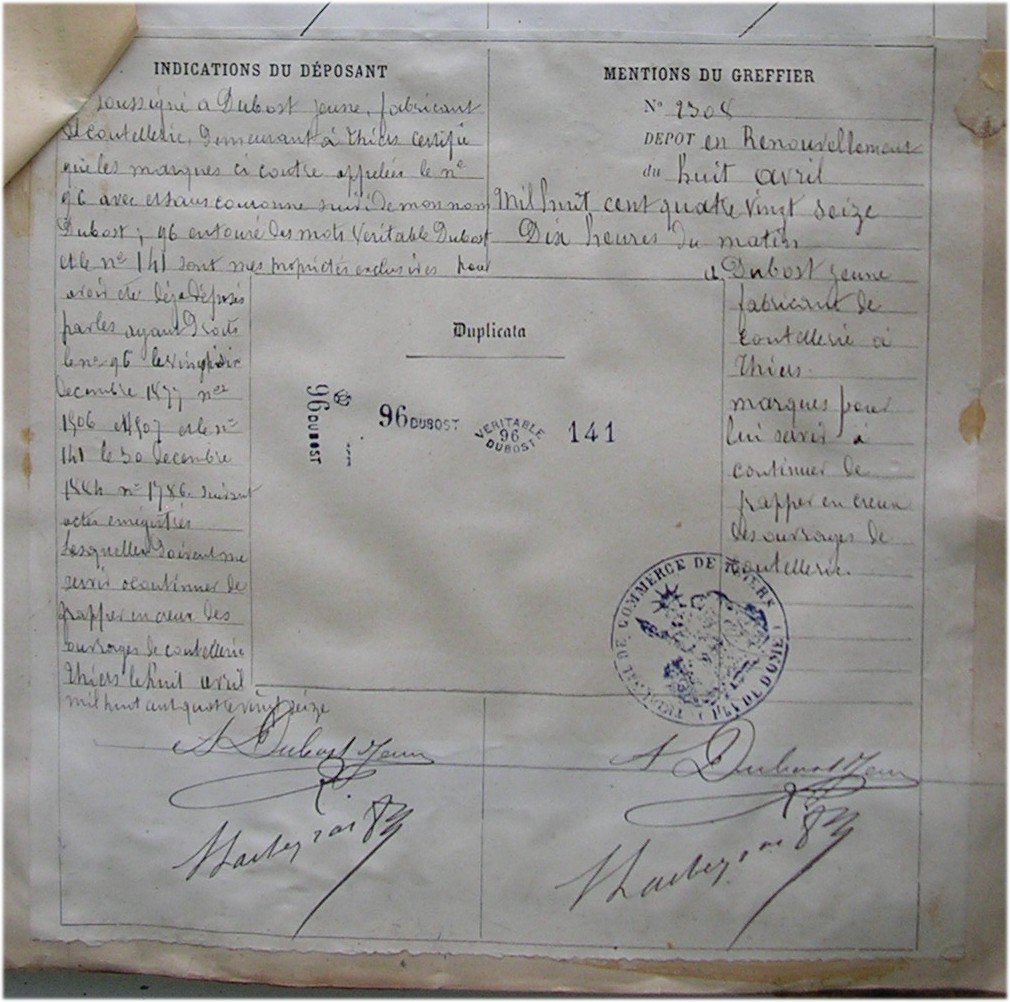 INDICATIONS DU DÉPOSANT
soussigné A Dubost jeune, fabricant
de coutellerie, Demeurant à Thiers certifie
que les marques ci contre appelées le nº
96 avec et sans couronne suivi de mon nom
Dubost; 96 entouré des mots Veritable Dubost
et le nº 141 sont mes propriétés exclusives pour
avoir été déja déposés
par les ayant Droits
le nº 96 le vingt
Decembre 1877 nos
1506 et 1507 et le nº
141 le 30 decembre
1884 nº 1786. suivant
actes enregistrés
Lesquelles doivent me
servir a continuer de
frapper en creux des
ouvrages de coutellerie
Thiers le huit avril
mil huit cent quatre vingt seize
A Dubost Jeune
MENTIONS DU GREFFIER
Nº
DEPOT en Renouvellement
du huit avril
Mil huit cent quatre vingt seize
Dix heures du matin
A Dubost jeune
fabricant de
coutellerie à
Thiers.
marques pour
lui servir à
continuer de
frapper en creux
des ouvrages de
coutellerie.
Duplicata
96 DUBOST
96 DUBOST
VERITABLE
96
DUBOST
141
TRIBUNAL DE COMMERCE DE THIERS
PUY DE DOME
A Dubost Jeune